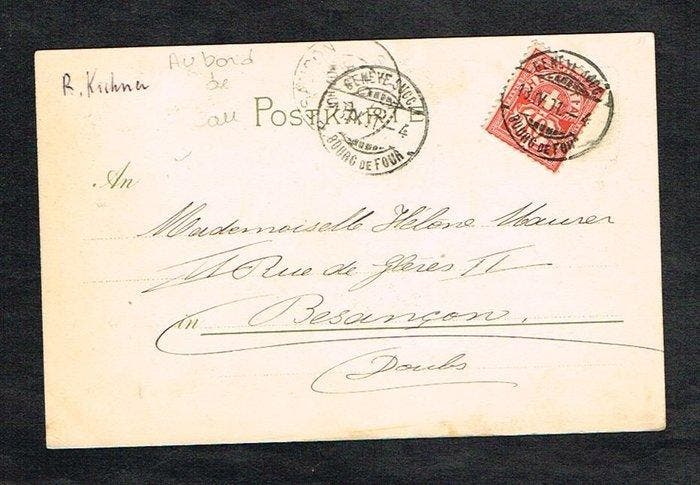 R. Kirchner
Au bord
de
eau
POSTKARTE
GENÈVE SUCC.
BOURG DE FOUR
GENÈVE SUCC.
13.IV.
4
BOURG DE FOUR
An
Mademoiselle Hélène Maurer
Rue de Glères 11
in Besançon.
Doubs